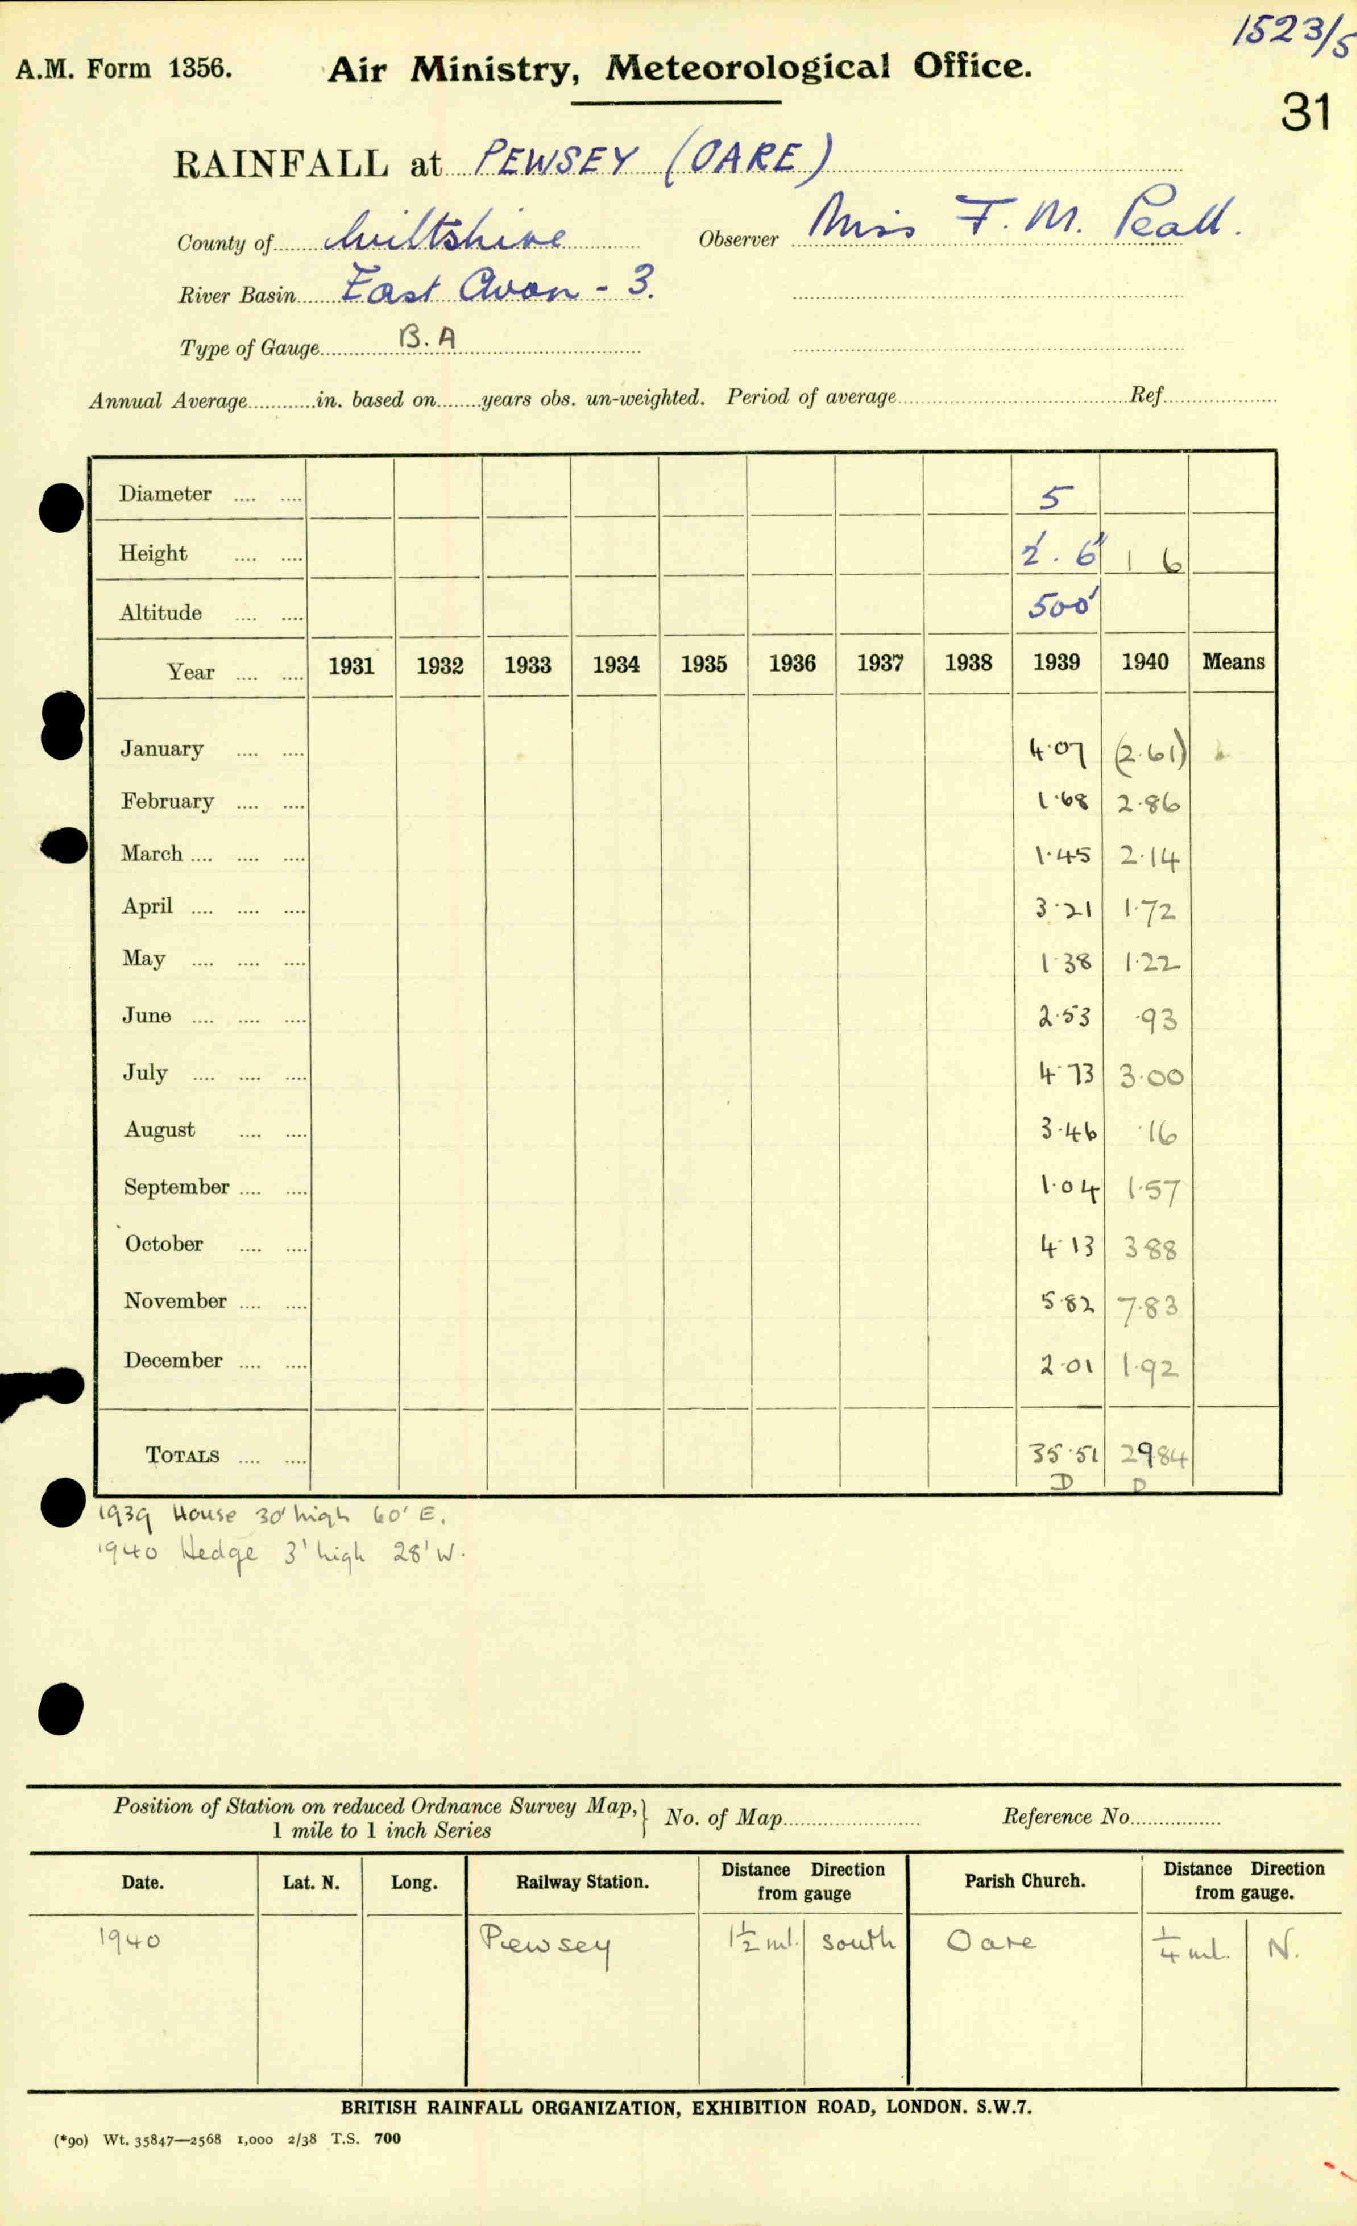 1523/5
A.M. Form 1356. Air Ministry, Meteorological Office.
31
RAINFALL at PEWSEY (OARE)
County of Wiltshire Observer Miss F. M. Peall.
River Basin East Avon - 3.
Type of Gauge B.A
Annual Average............in. based on........years obs. un-weighted. Period of average............Ref............
Diameter .... .... 5
Height .... .... 2' . 6" 1 6
Altitude .... .... 500'
Year .... .... 1931 1932 1933 1934 1935 1936 1937 1938 1939 1940 Means
January .... .... 4.07 (2.61)
February .... .... 1.68 2.86
March .... .... .... 1.45 2.14
April .... .... .... 3.21 1.72
May .... .... .... 1.38 1.22
June .... .... .... 2.53 .93
July .... .... .... 4.73 3.00
August .... .... 3.46 .16
September .... .... 1.04 1.57
October .... .... 4.13 3.88
November .... .... 5.82 7.83
December .... .... 2.01 1.92
TOTALS .... .... 35.51 29.84
D D
1939 House 30' high 60' E.
1940 Hedge 3' high 28' W.
Position of Station on reduced Ordnance Survey Map, } No. of Map............ Reference No............
1 mile to 1 inch Series
Date. Lat. N. Long. Railway Station. Distance Direction from gauge Parish Church. Distance Direction from gauge.
1940 Pewsey 1½ ml. south Oare ¼ ml. N.
BRITISH RAINFALL ORGANIZATION, EXHIBITION ROAD, LONDON. S.W.7.
(*90) Wt. 35847—2568 1,000 2/38 T.S. 700